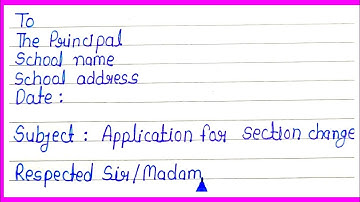 To
The Principal
School name
School address
Date :
Subject : Application for section change
Respected Sir/Madam